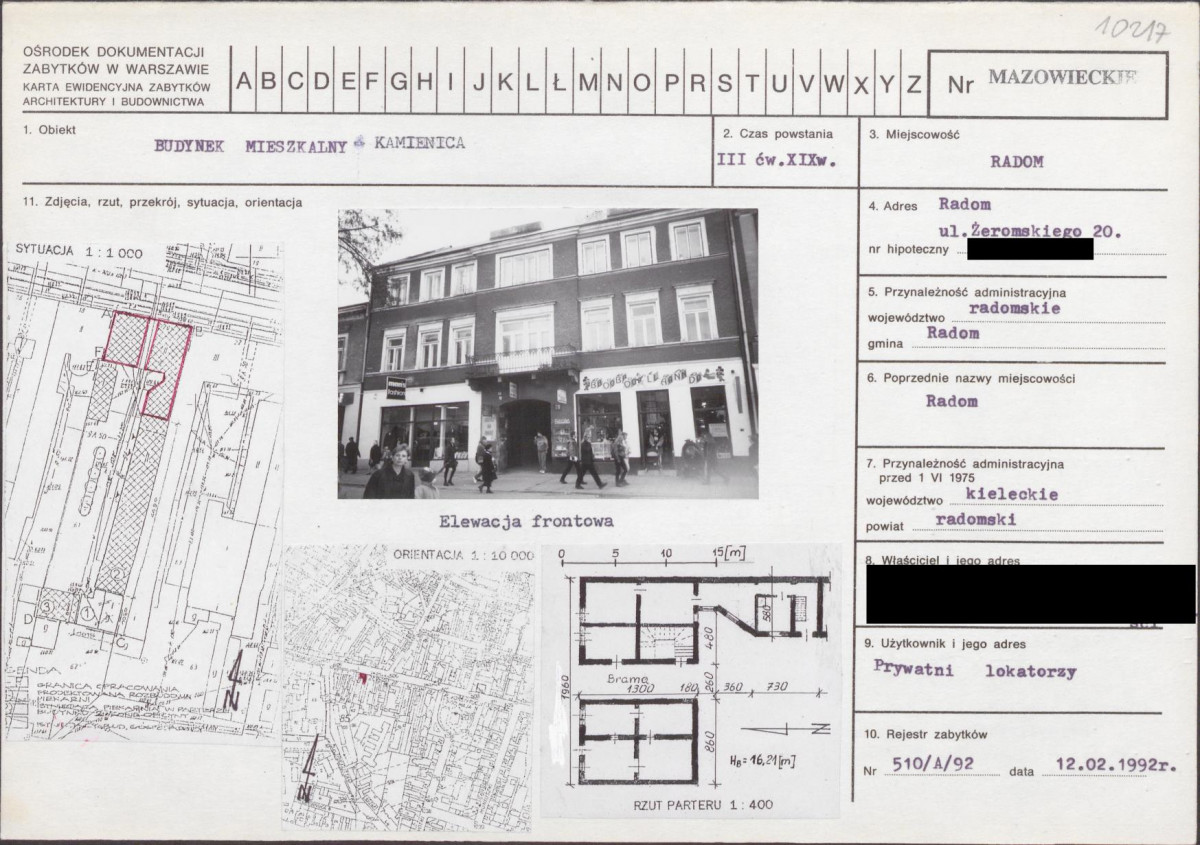 10217
OŚRODEK DOKUMENTACJI
ZABYTKÓW W WARSZAWIE
KARTA EWIDENCYJNA ZABYTKÓW
ARCHITEKTURY I BUDOWNICTWA
A B C D E F G H I J K L Ł M N O P R S T U V W X Y Z
Nr MAZOWIECKIE
1. Obiekt
BUDYNEK MIESZKALNY KAMIENICA
2. Czas powstania
III ćw.XIXw.
3. Miejscowość
RADOM
4. Adres Radom
ul.Żeromskiego 20.
nr hipoteczny
5. Przynależność administracyjna
województwo radomskie
gmina Radom
6. Poprzednie nazwy miejscowości
Radom
7. Przynależność administracyjna
przed 1 VI 1975
województwo kieleckie
powiat radomski
8. Właściciel i jego adres
9. Użytkownik i jego adres
Prywatni lokatorzy
10. Rejestr zabytków
Nr 510/A/92 data 12.02.1992r.
11. Zdjęcia, rzut, przekrój, sytuacja, orientacja
SYTUACJA 1:1000
A
B
F
2
3
1
D
C
GRANICA OPRACOWANIA
N
Elewacja frontowa
ORIENTACJA 1:10 000
85
N
0 5 10 15[m]
580
480
Brama
1300 180 260 360 730
1960
860
N
HB=16,21[m]
RZUT PARTERU 1:400